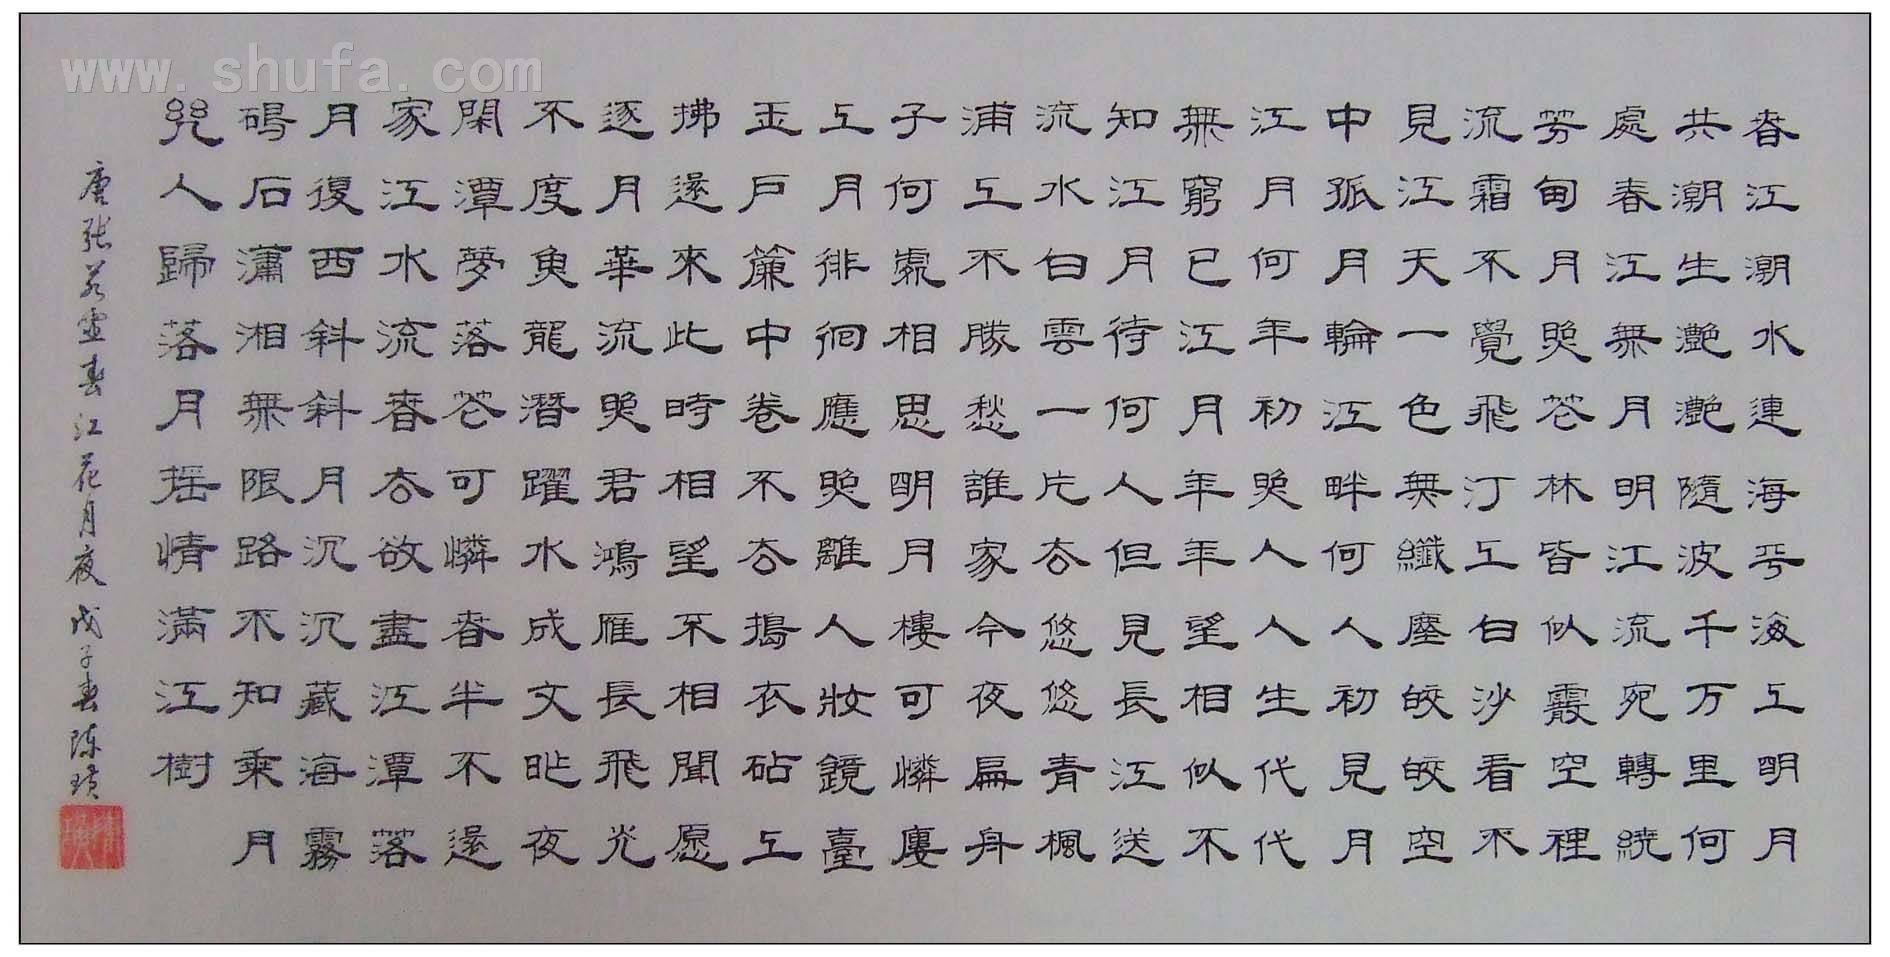 春江潮水連海平海上明月
共潮生灩灩隨波千万里何
處春江無月明江流宛轉繞
芳甸月照花林皆似霰空裡
流霜不覺飛汀上白沙看不
見江天一色無纖塵皎皎空
中孤月輪江畔何人初見月
江月何年初照人人生代代
無窮已江月年年望相似不
知江月待何人但見長江送
流水白雲一片去悠悠青楓
浦上不勝愁誰家今夜扁舟
子何處相思明月樓可憐廔
上月徘徊應照離人妝鏡臺
玉戶簾中卷不去搗衣砧上
拂還來此時相望不相聞愿
逐月華流照君鴻雁長飛光
不度魚龍潛躍水成文昨夜
閑潭夢落花可憐春半不還
家江水流春去欲盡江潭落
月復西斜斜月沉沉藏海霧
碣石瀟湘無限路不知乘月
幾人歸落月搖情滿江樹
唐張若虛春江花月夜 戊子春陈
www.shufa.com